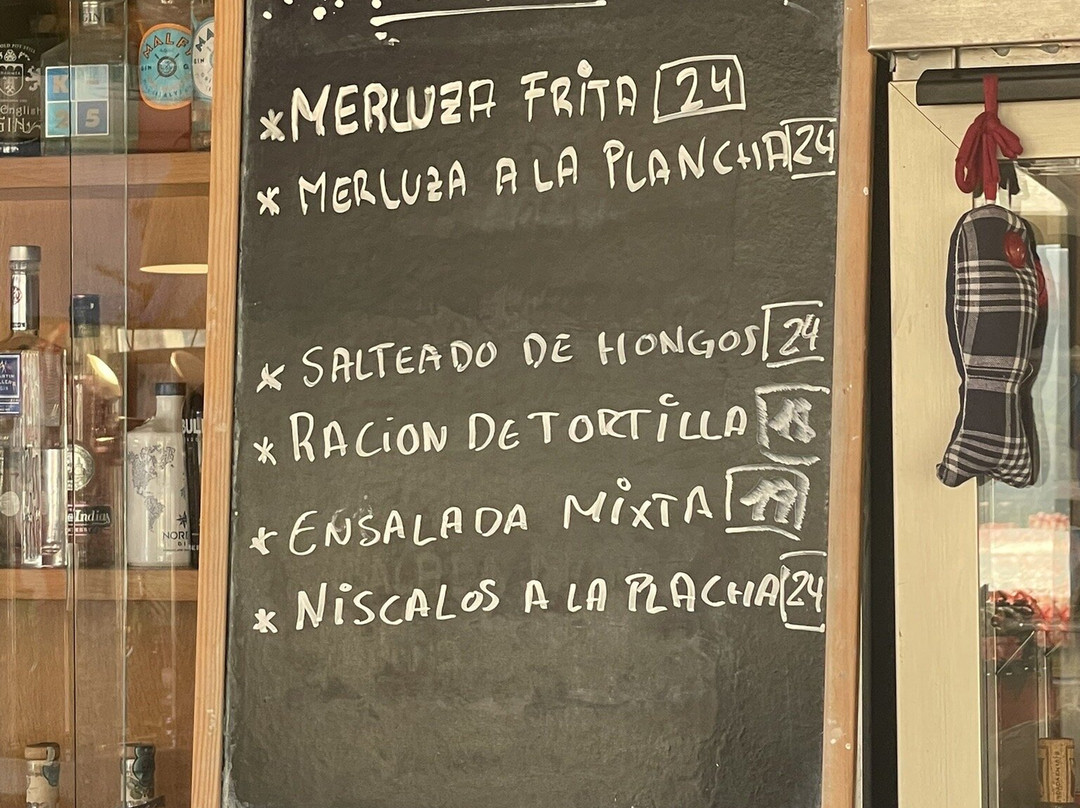 *MERLUZA FRITA 24
*MERLUZA A LA PLANCHA 24
*SALTEADO DE HONGOS 24
*RACION DE TORTILLA
*ENSALADA MIXTA
*NISCALOS A LA PLACHA 24
MALFY
GIN
English
GIN
K
25
Indias
BUL
NOR